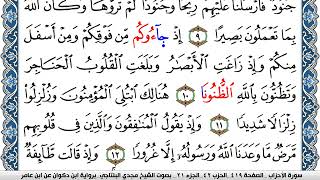 جُنُودٌ فَأَرْسَلْنَا عَلَيْهِمْ رِيحًا وَجُنُودًا لَّمْ تَرَوْهَا وَكَانَ اللَّهُ
بِمَا تَعْمَلُونَ بَصِيرًا ٩ إِذْ جَآءُوكُم مِّن فَوْقِكُمْ وَمِنْ أَسْفَلَ
مِنكُمْ وَإِذْ زَاغَتِ الْأَبْصَٰرُ وَبَلَغَتِ الْقُلُوبُ الْحَنَاجِرَ
وَتَظُنُّونَ بِاللَّهِ الظُّنُونَا ١٠ هُنَالِكَ ابْتُلِىَ الْمُؤْمِنُونَ وَزُلْزِلُوا
زِلْزَالًا شَدِيدًا ١١ وَإِذْ يَقُولُ الْمُنَٰفِقُونَ وَالَّذِينَ فِى قُلُوبِهِم
مَّرَضٌ مَّا وَعَدَنَا اللَّهُ وَرَسُولُهُ إِلَّا غُرُورًا ١٢ وَإِذْ قَالَت طَّآئِفَةٌ
سورة الأحزاب . الصفحة ٤١٩ . الحزب ٤٢ . الجزء ٢١ . بصوت الشيخ مجدي البتلاجي . برواية ابن ذكوان عن ابن عامر